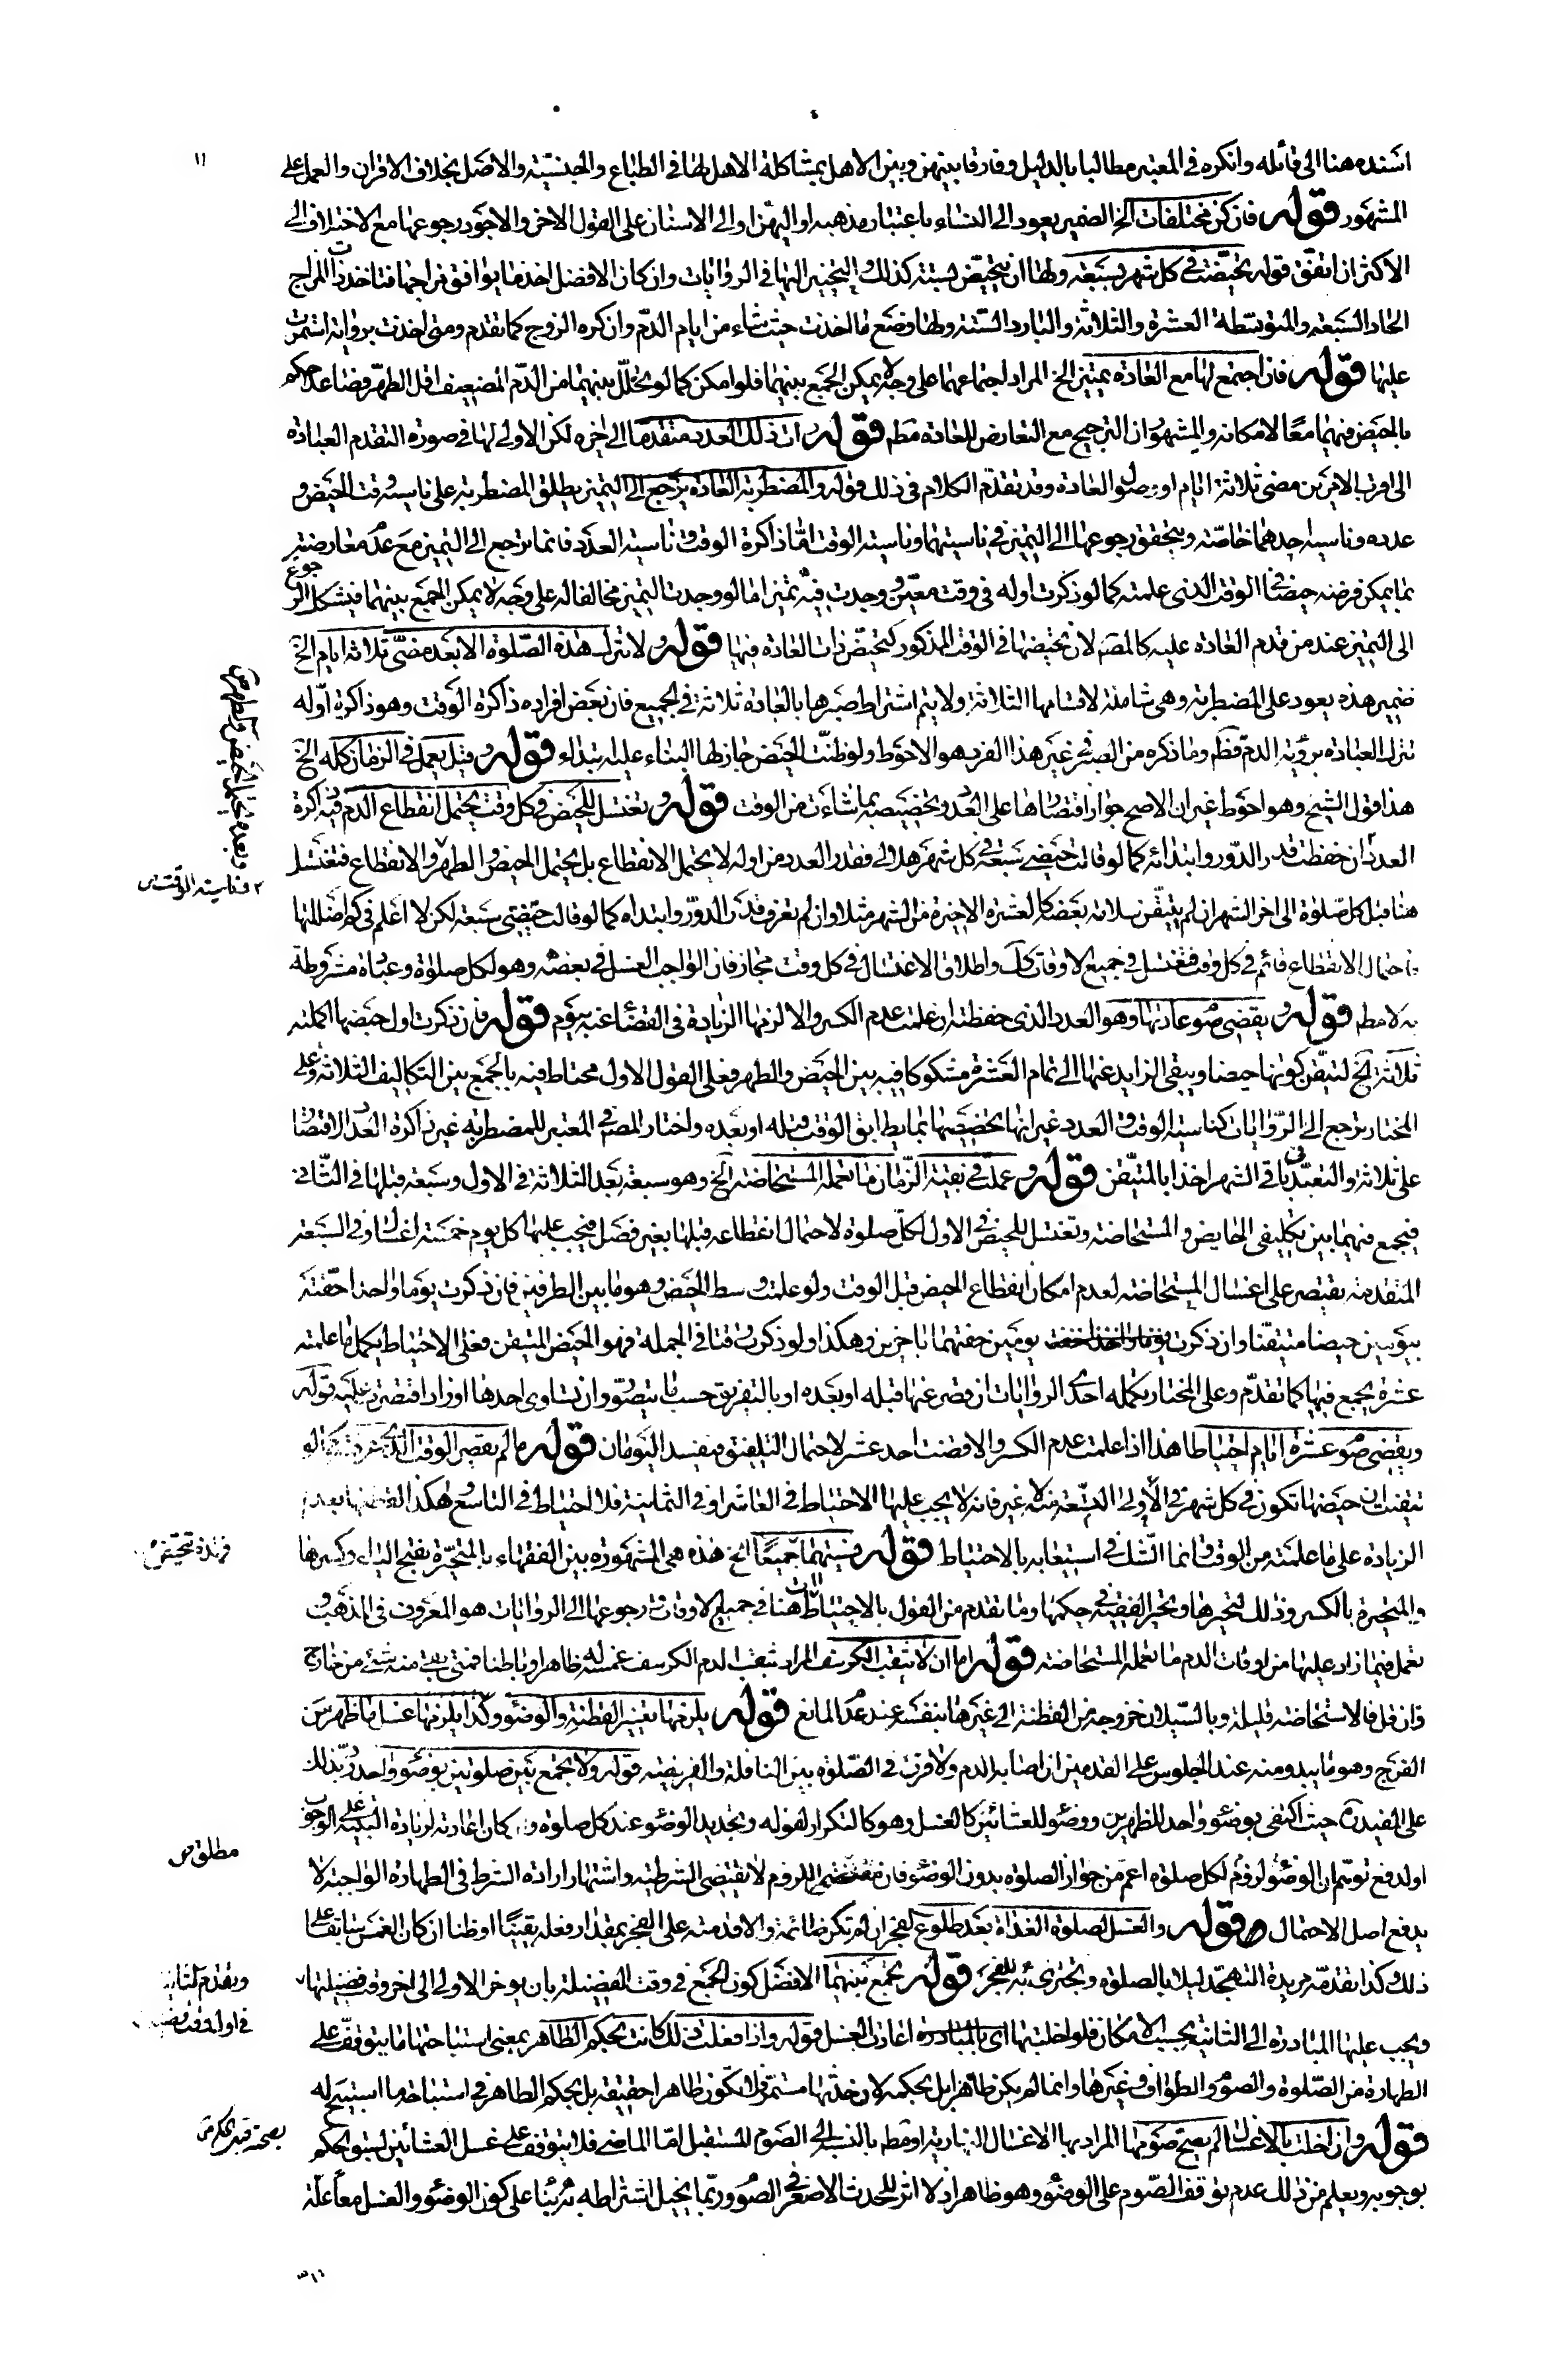 ١١
اسنده هنا الى قائله وانكره في المعتبر مطالبا بالدليل وفارقا بينهن وبين الاهل بمشاكلة الاهل لها في الطباع والجنسية والاصل بخلاف الاقران والعمل على
المشهور قوله فان كن مختلفات الخ الضمير يعود الى النساء باعتبار مذهبه او اليهن او الى الاسنان على القول الاخر والاجود رجوعها مع الاختلاف الى
الاكثر ان اتفق قوله تحيضت في كل شهر بسبعة ولها ان تتحيض بستة كذلك والتخيير اليها في الروايات وان كان الافضل اخذ ما يوافق مزاجها فتاخذ ذات المزاج
الحار السبعة والمتوسطة العشرة والثلاثة والبارد الستة ولها وضع ما اخذت حيث شاء من ايام الدم وان كره الزوج كما تقدم ومتى اخذت برواية استمرت
عليها قوله فان اجتمع لها مع العادة تمييز الخ المراد اجتماعهما على وجه لا يمكن الجمع بينهما فلو امكن كما لو تخلل بينهما من الدم الضعيف اقل الطهر فصاعدا حكم
بالحيض فيهما معا لامكانه والمشهور ان الترجيح مع التعارض للعادة مطم قوله ان ذلك العدد متقدما الى اخره لكن الاولى لها في صورة التقدم العبادة
الى اقرب الامرين مضى ثلاثة ايام او وصول العادة وقد تقدم الكلام في ذلك قوله والمضطربة العادة ترجع الى التمييز يطلق المضطربة على ناسية وقت الحيض و
عدده وناسية احدهما خاصة ويتحقق رجوعها الى التمييز في ناسيتهما وناسية الوقت اما ذاكرة الوقت وناسية العدد فانما ترجع الى التمييز مع عدم معارضته
بما يمكن فرضه حيضا في الوقت الذي علمته كما لو ذكرت اوله في وقت معين ووجدت فيه تميزا اما لو وجدت التمييز مخالفا له على وجه لا يمكن الجمع بينهما فيشكل الرجوع
الى التمييز عند من قدم العادة عليه كالمصم لان تحيضها في الوقت المذكور كتحيض ذات العادة فيها قوله ولا تترك هذه الصلوة الا بعد مضي ثلاثة ايام الخ
ضمير هذه يعود على المضطربة وهي شاملة لاقسامها الثلاثة ولا يتم اشتراط صبرها بالعادة ثلاثة في الجميع فان بعض افراده ذاكرة الوقت وهو ذاكرة اوله
تترك العبادة برؤية الدم قطم وما ذكره من الصبر في غير هذا الفرد هو الاحوط ولو ظنت الحيض جاز لها البناء عليه ابتداء قوله وقيل يعمل في الزمان كله الخ
هذا قول الشيخ وهو احوط غير ان الاصح جواز اقتصارها على العدد وتخصيصه بما شاءت من الوقت قوله وتغتسل للحيض في كل وقت يحتمل انقطاع الدم فيه ذاكرة
العدد ان حفظت قدر الدور وابتدائه كما لو قالت حيضي سبعة في كل شهر هلالي فقدر العدد من اوله لا يحتمل الانقطاع بل يحتمل الحيض والطهر والانقطاع فتغتسل
هنا قبل كل صلوة الى اخر الشهر ان لم يتيقن سلامة بعضه كالعشرة الاخيرة من الشهر مثلا وان لم تعرف قدر الدور وابتداه كما لو قالت حيضتي سبعة لكن لا اعلم في كم اضللتها
احتمال الانقطاع قائم في كل وقت فتغتسل في جميع الاوقات كك واطلاق الاغتسال في كل وقت مجاز فان الواجب الغسل في بعضه وهو لكل صلوة وعبادة مشروطة
به لا مطم قوله ويقضي صوم عادتها وهو العدد الذي حفظته ان علمت عدم الكسر والا لزمها الزيادة في القضاء عنه بيوم قوله فان ذكرت اول حيضها اكملته
ثلاثة الخ لتيقن كونها حيضا ويبقى الزايد عنها الى تمام العشرة مشكوكا فيه بين الحيض والطهر فعلى القول الاول محتاط فيه بالجمع بين التكاليف الثلاثة وعلى
المختار ترجع الى الروايات كناسية الوقت والعدد غير انها تخصيصها بما يطابق الوقت قبله او بعده واختار المصم في المعتبر للمضطربة غير ذاكرة العدد الاقتصار
على ثلاثة والتعبد في باقي الشهر اخذا بالمتيقن قوله وعملت في بقية الزمان ما تعمله المستحاضة الخ وهو سبعة بعد الثلاثة في الاول وسبعة قبلها في الثاني
فيجمع فيهما بين تكليفي الحايض والمستحاضة وتغتسل للحيض في الاول لكل صلوة لاحتمال انقطاعه قبلها بغير فصل فيجب عليها كل يوم خمسة اغسال وفي السبعة
المتقدمة يقتصر على اغسال المستحاضة لعدم امكان انقطاع الحيض قبل الوقت ولو علمت وسط الحيض وهو ما بين الطرفين فان ذكرت يوما واحدا حفته
بيومين حيضا متيقنا وان ذكرت يومين حفتهما باخرين وهكذا ولو ذكرت وقتا في الجملة فهو الحيض المتيقن فعلى الاحتياط يكمل ما علمته
عشرة يجمع فيها كما تقدم وعلى المختار يكمله احدى الروايات ان قصر عنها قبله او بعده او بالتفريق حسب ما يتصور وان تساوى احدها او زاد اقتصرت عليه قوله
ويقضي صوم عشرة ايام احتياطا هذا اذا علمت عدم الكسر والا قضت احد عشر لاحتمال التلفيق فيفسد اليومان قوله ما لم يقصر الوقت الذي عرفته كما لو
تيقنت ان حيضها تكون في كل شهر في الاولى التسعة مثلا غير فانه لا يجب عليها الاحتياط في العاشر او في الثمانية فلا احتياط في التاسع وهكذا لقطعها بعدم
الزيادة على ما علمته من الوقت وانما الشك في استيعابه بالاحتياط قوله نسيتهما جميعا الخ هذه هي المشهورة بين الفقهاء بالمتحيرة بفتح الياء وكسرها
والمتحيرة بالكسر وذلك لتحيرها وتحير الفقيه في حكمها وما تقدم من القول بالاحتياط ات هنا في جميع الاوقات ورجوعها الى الروايات هو المعروف في المذهب و
تعمل فيما زاد عليها من اوقات الدم ما تعمله المستحاضة قوله اما ان لا يثقب الكرسف المراد بثقب الدم الكرسف غمسه له ظاهرا وباطنا فمتى بقي منه شئ من خارج
وان قل فالاستحاضة قليلة وبالسيلان خروجه من القطنة الى غيرها بنفسه عند عدم المانع قوله يلزمها تغيير القطنة والوضوء وكذا يلزمها غسل ما ظهر من
الفرج وهو ما يبدو منه عند الجلوس على القدمين ان اصابه الدم ولا فرق في الصلوة بين النافلة والفريضة قوله ولا تجمع بين صلوتين بوضوء واحد رد بذلك
على المفيد ره حيث اكتفى بوضوء واحد للظهرين ووضوء للعشائين كالغسل وهو كالتكرار لقوله وتجديد الوضوء عند كل صلوة و كان اعادته لزيادة التنبيه على الوجوب
او لدفع توهم ان الوضوء لزوم لكل صلوة اعم من جواز الصلوة بدون الوضوء فان اللزوم لا تقتضي الشرطية واشتهار ارادة الشرط في الطهارة الواجبة لا
يدفع اصل الاحتمال قوله والغسل لصلوة الغداة بعد طلوع الفجر ان لم تكن صائمة والا قدمته على الفجر بمقدار فعله يقينا او ظنا ان كان الغمس سابقا على
ذلك وكذا تقدمه مريدة التهجد ليلا بالصلوة وتجتزئ به للفجر قوله تجمع بينهما الافضل كون الجمع في وقت الفضيلة بان يوخر الاولى الى اخر وقت فضيلتها
ويجب عليها المبادرة الى الثانية بحسب الامكان فلو اخلت بها اي بالمبادرة اعادت الغسل قوله واذا فعلت ذلك كانت بحكم الطاهر بمعنى استباحتها ما يتوقف على
الطهارة من الصلوة والصوم والطواف وغيرها وانما لم يكن طاهرا بل بحكمه لان حدثها مستمر فلا تكون طاهرا حقيقة بل بحكم الطاهر في استباحة ما استبيح له
قوله وان اخلت بالاغسال لم يصح صومها المراد بها الاغسال النهارية او مطم بالنسبة الى الصوم المستقبل اما الماضي فلا يتوقف على غسل العشائين لسبق الحكم
بوجوبه ويعلم من ذلك عدم توقف الصوم على الوضوء وهو ظاهر اذ لا اثر للحدث الاصغر في الصوم وربما يخيل اشتراطه بترتبا على كون الوضوء والغسل معا علة
٢ وناسية الوقت
مطلق
وتقدم الثانية
في اول وقت